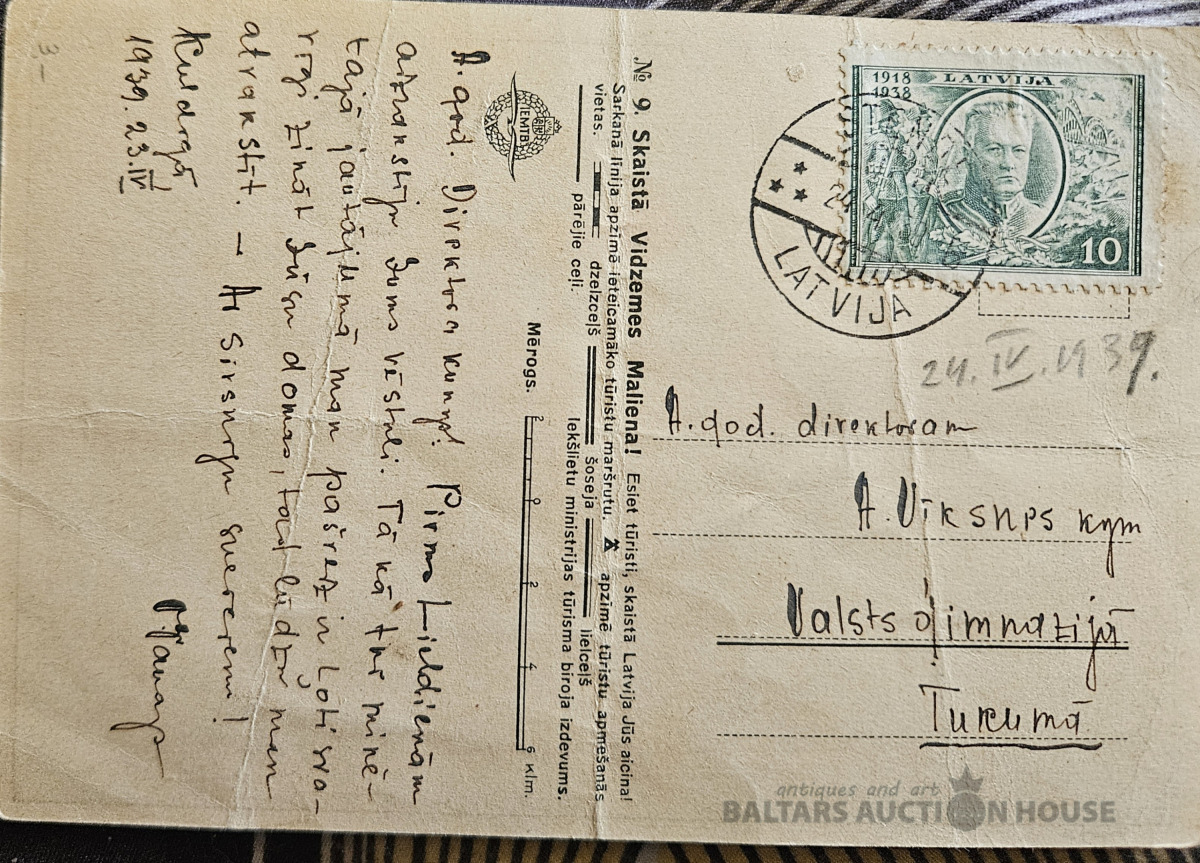 1918 LATVIJA
1938
10
LATVIJA
24. IV. 1939.
A. god. direktoram
A. Vīksnes kgm
Valsts ģimnāzijā
Tukumā
№ 9. Skaistā Vidzemes Maliena! Esiet tūristi, skaistā Latvija Jūs aicina!
Sarkanā līnija apzīmē ieteicamāko tūristu maršrutu. apzīmē tūristu apmešanās
vietas. dzelzceļš šoseja lielceļš
pārējie ceļi.
Iekšlietu ministrijas tūrisma biroja izdevums.
Mērogs. 2 0 2 4 6 klm.
IEMTB
A. god. Direktora kungs! Pirms Lieldienām
aizrakstīju Jums vēstuli. Tā kā tur minē-
tajā jautājumā man pašreiz ir ļoti sva-
rīgi zināt Jūsu domas, tad lūdzu man
atrakstīt. – Ar sirsnīgu sveicienu!
Kuldīgā
1939. 23. IV
3-
antiques and art
BALTARS AUCTION HOUSE